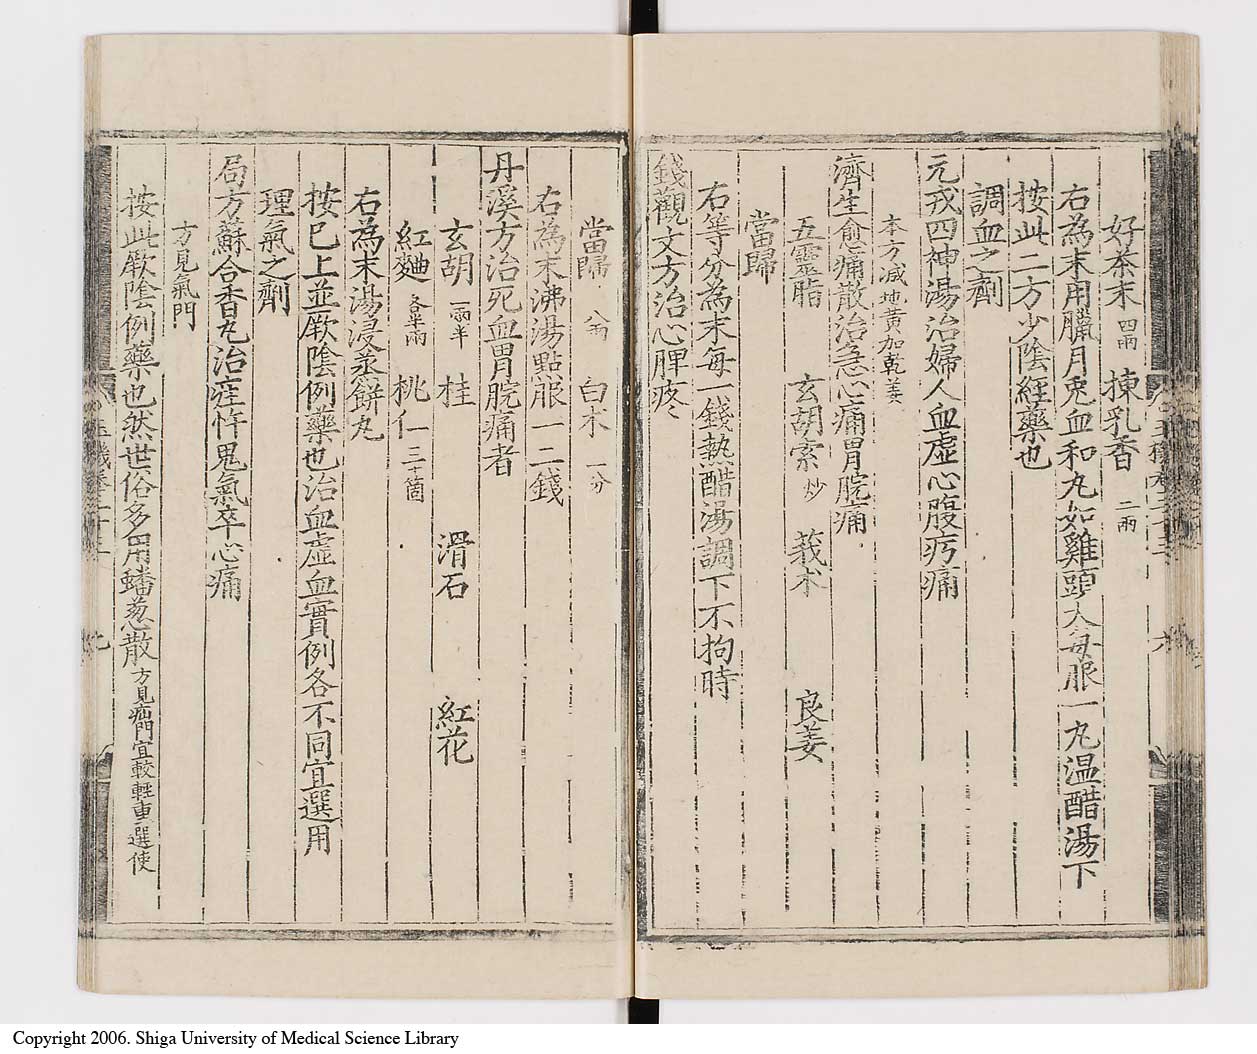 好茶末 四兩 揀乳香 二兩
右為末用臘月兎血和丸如雞頭大每服一丸温醋湯下
按此二方少陰經藥也
調血之劑
元戎四神湯治婦人血虛心腹㽲痛
本方減地黄加乾姜
濟生愈痛散治急心痛胃脘痛
五靈脂 玄胡索 炒 莪朮 良姜
當歸
右等分為末每一錢熱醋湯調下不拘時
錢觀文方治心脾疼
當歸 八兩 白朮 一分
右為末沸湯點服一二錢
丹溪方治死血胃脘痛者
玄胡 一兩半 桂 滑石 紅花
紅麯 各半兩 桃仁 三十箇
右為末湯浸蒸餅丸
按已上並厥陰例藥也治血虛血實例各不同宜選用
理氣之劑
局方蘇合香丸治疰忤鬼氣卒心痛
方見氣門
按此厥陰例藥也然世俗多用蟠葱散 方見疝門宜較輕重選使
九
Copyright 2006. Shiga University of Medical Science Library